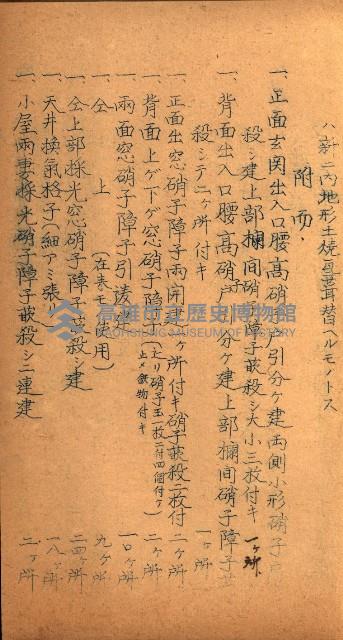 ハ新ニ内地形土焼瓦葺替ヘルモノトス
附而、
一、正面玄関出入口腰高硝子戸引分ケ建両側小形硝子戸
殺シ建上部欄間硝子障子嵌殺シ大小三枚付キ 一ヶ所、
一、背面出入口腰高硝子戸引分ケ建上部欄間硝子障子
殺シテ二ヶ所付キ 一ヶ所
一、正面出窓硝子障子両開建二ヶ所付キ硝子嵌殺二枚付 二ヶ所
一、背面上ゲ下ゲ窓硝子障子 二ヶ所
上メ鉄物付キ
一、両面窓硝子障子引 一〇ヶ所
一、仝 上 (在来モノ使用) 九ヶ所
一、仝上部採光窓硝子障子嵌殺シ建 二四ヶ所
一、天井換氣格子(細アミ張) 一八ヶ所
一、小屋両妻採光硝子障子嵌殺シ二連建 二ヶ所
高雄市立歷史博物館
KAOHSIUNG MUSEUM OF HISTORY